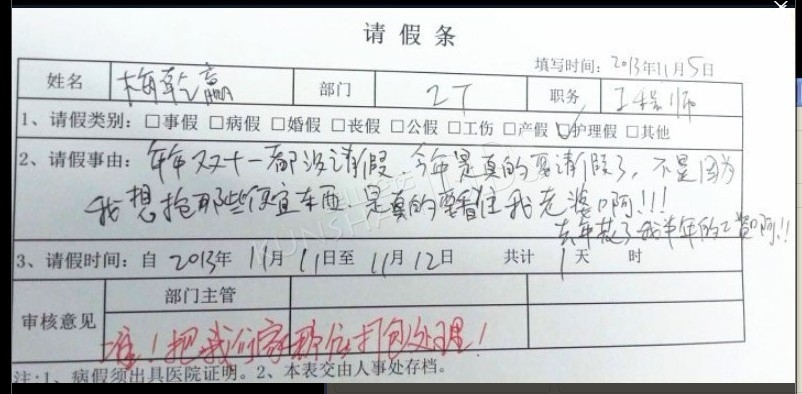 请假条
填写时间：2013年11月5日
姓名 梅乾赢 部门 IT 职务 工程师
1、请假类别：□事假 □病假 □婚假 □丧假 □公假 □工伤 □产假 ☑护理假 □其他
2、请假事由：年年双十一都没请假，今年是真的要请假了，不是因为
我想抢那些便宜东西，是真的要看住我老婆啊!!!
去年败了我半年的工资啊!!
3、请假时间：自 2013年 11月 11日至 11月 12日 共计 1天 时
部门主管
审核意见
准！把我们家那位打包处理！
注：1、病假须出具医院证明。2、本表交由人事处存档。